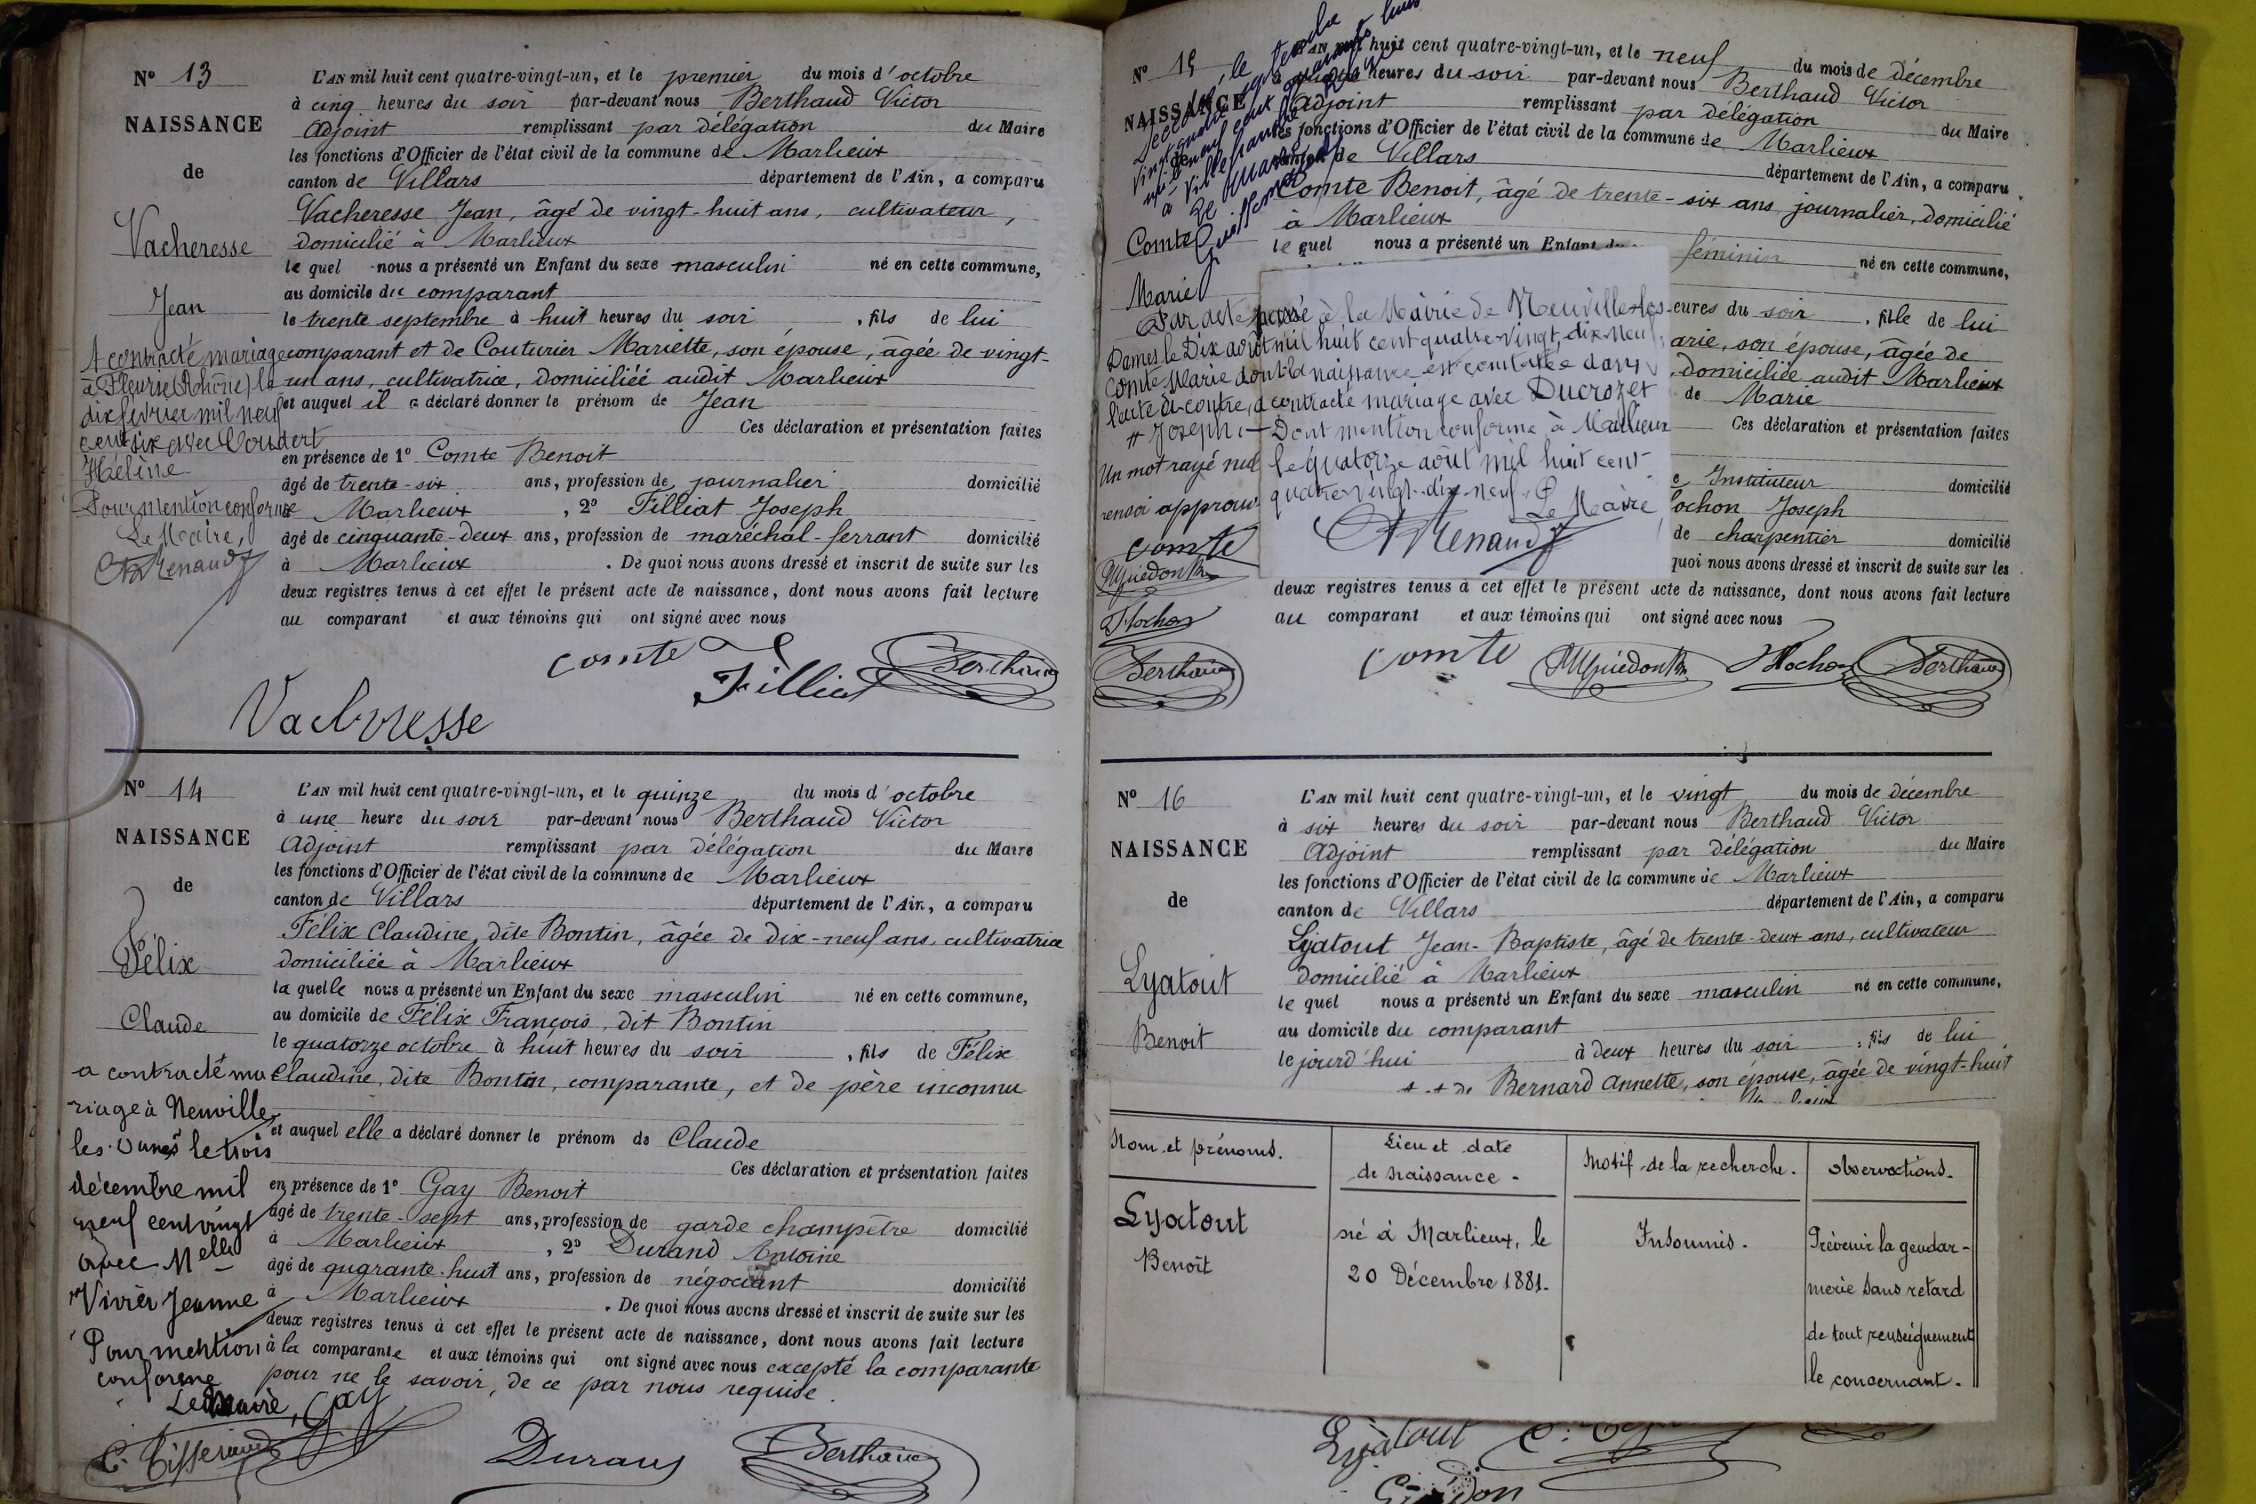 Nº 13
L'AN mil huit cent quatre-vingt-un, et le premier du mois d'octobre
à cinq heures du soir par-devant nous Berthaud Victor
NAISSANCE
Adjoint remplissant par délégation du Maire
les fonctions d'Officier de l'état civil de la commune de Marlieux
de
canton de Villars département de l'Ain, a comparu
Vacheresse Jean, âgé de vingt-huit ans, cultivateur,
Vacheresse
domicilié à Marlieux
le quel nous a présenté un Enfant du sexe masculin né en cette commune,
au domicile du comparant
Jean
le trente septembre à huit heures du soir, fils de lui
comparant et de Couturier Mariette, son épouse, âgée de vingt-
un ans, cultivatrice, domiciliée audit Marlieux
et auquel il a déclaré donner le prénom de Jean
Ces déclaration et présentation faites
en présence de 1º Comte Benoit
âgé de trente-six ans, profession de journalier domicilié
à Marlieux, 2º Filliat Joseph
âgé de cinquante-deux ans, profession de maréchal-ferrant domicilié
à Marlieux. De quoi nous avons dressé et inscrit de suite sur les
deux registres tenus à cet effet le présent acte de naissance, dont nous avons fait lecture
au comparant et aux témoins qui ont signé avec nous
A contracté mariage
à Fleurie (Rhône) le
dix février mil neuf
cent six avec Coudert
Hélène
Pour mention conforme
Le Maire,
Renaud
comte Filliat Berthaud
Vacheresse
Nº 14
L'AN mil huit cent quatre-vingt-un, et le quinze du mois d'octobre
à une heure du soir par-devant nous Berthaud Victor
NAISSANCE
Adjoint remplissant par délégation du Maire
les fonctions d'Officier de l'état civil de la commune de Marlieux
de
canton de Villars département de l'Ain, a comparu
Félix Claudine, dite Bontin, âgée de dix-neuf ans, cultivatrice
Félix
domiciliée à Marlieux
la quelle nous a présenté un Enfant du sexe masculin né en cette commune,
Claude
au domicile de Félix François, dit Bontin
le quatorze octobre à huit heures du soir, fils de Félix
Claudine, dite Bontin, comparante, et de père inconnu
et auquel elle a déclaré donner le prénom de Claude
Ces déclaration et présentation faites
en présence de 1º Gay Benoit
âgé de trente-sept ans, profession de garde champêtre domicilié
à Marlieux, 2º Durand Antoine
âgé de quarante-huit ans, profession de négociant domicilié
à Marlieux. De quoi nous avons dressé et inscrit de suite sur les
deux registres tenus à cet effet le présent acte de naissance, dont nous avons fait lecture
à la comparante et aux témoins qui ont signé avec nous excepté la comparante
pour ne le savoir, de ce par nous requise.
a contracté ma
riage à Neuville
les Dames le trois
décembre mil
neuf cent vingt
avec Melle
Vivier Jeanne
Pour mention
conforme
Le Maire,
C. Tisserand
Gay
Durand Berthaud
Nº 15
L'AN mil huit cent quatre-vingt-un, et le neuf du mois de décembre
heures du soir par-devant nous Berthaud Victor
NAISSANCE
Adjoint remplissant par délégation du Maire
les fonctions d'Officier de l'état civil de la commune de Marlieux
de
canton de Villars département de l'Ain, a comparu
Comte Benoit, âgé de trente-six ans journalier, domicilié
Comte
à Marlieux
le quel nous a présenté un Enfant du féminin né en cette commune,
Marie
eures du soir, fille de lui
arie, son épouse, âgée de
, domiciliée audit Marlieux
de Marie
Ces déclaration et présentation faites
Instituteur domicilié
lochon Joseph
de charpentier domicilié
quoi nous avons dressé et inscrit de suite sur les
deux registres tenus à cet effet le présent acte de naissance, dont nous avons fait lecture
au comparant et aux témoins qui ont signé avec nous
Par acte passé à la Mairie de Neuville-les-
Dames le Dix août mil huit cent quatre vingt dix-neuf
Comte Marie dont la naissance est constatée dans
l'acte ci-contre, a contracté mariage avec Ducrozet
# Joseph. — Dont mention conforme à Marlieux
le quatorze août mil huit cent
quatre-vingt-dix-neuf. Le Maire,
Renaud
Un mot rayé nul
renvoi approuvé
comte
Berthaud
comte Berthaud
Nº 16
L'AN mil huit cent quatre-vingt-un, et le vingt du mois de décembre
à six heures du soir par-devant nous Berthaud Victor
NAISSANCE
Adjoint remplissant par délégation du Maire
les fonctions d'Officier de l'état civil de la commune de Marlieux
de
canton de Villars département de l'Ain, a comparu
Lyatout Jean-Baptiste, âgé de trente-deux ans, cultivateur
Lyatout
domicilié à Marlieux
le quel nous a présenté un Enfant du sexe masculin né en cette commune,
Benoit
au domicile du comparant
le jourd'hui à deux heures du soir, fils de lui
de Bernard Annette, son épouse, âgée de vingt-huit
Nom et prénoms.
Lieu et date
de naissance.
Motif de la recherche.
observations.
Lyatout
Benoît
né à Marlieux, le
20 Décembre 1881.
Insoumis.
Prévenir la gendar-
merie sans retard
de tout renseignement
le concernant.
Lyatout